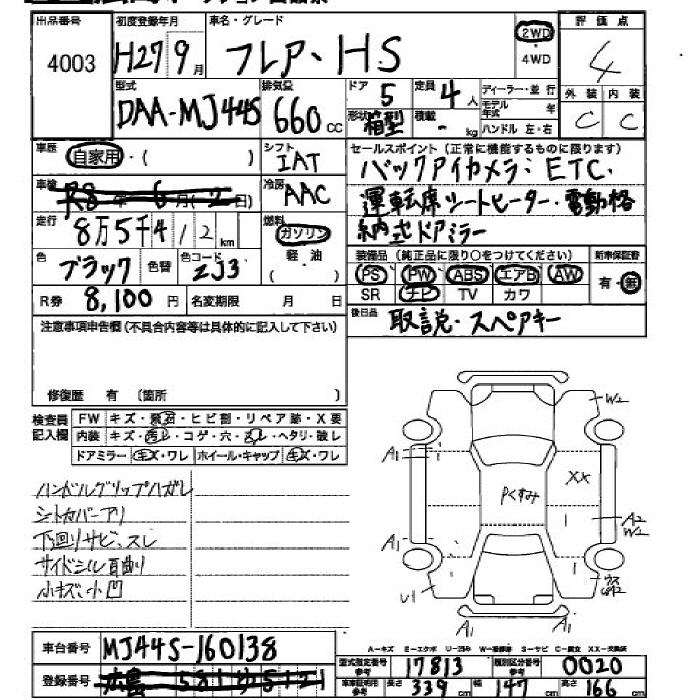 出品番号 初度登録年月 車名・グレード 評価点
4003 H27 9月 フレア・HS 2WD・4WD 4
型式 排気量 ドア 定員 ディーラー・並行 外装 内装
DAA-MJ44S 660cc 5 4人 モデル年式 年 C C
形状 箱型 積載 - kg ハンドル 左・右
車歴 自家用・( ) シフト IAT セールスポイント(正常に機能するものに限ります)
車検 R8年6月(2日) 冷房 AAC バックアイカメラ:ETC.
走行 8万5千412km 燃料 ガソリン・軽・油( ) 運転席シートヒーター・電動格
納式ドアミラー
色 ブラック 色替 色コード ZJ3 装備品(純正品に限り○をつけてください) 新車保証書
PS PW ABS エアB AW 有・無
R券 8,100円 名変期限 月 日 SR ナビ TV カワ
注意事項申告欄(不具合内容等は具体的に記入して下さい) 後日品 取説・スペアキー
修復歴 有(箇所 )
検査員記入欄 FW キズ・飛石・ヒビ割・リペア跡・X要
内装 キズ・汚レ・コゲ・穴・スレ・ヘタリ・破レ
ドアミラー キズ・ワレ ホイール・キャップ キズ・ワレ
ハンドルグリップハガレ
シートカバーアリ
下廻りサビ、スレ
サイドシル耳曲り
小キズ・小凹
W2
A1
XX
Pくすみ
A2
W2
A1
U1
A1 A1
A-キズ E-エクボ U-凹み W-補修跡 S-サビ C-腐食 XX-交換済
車台番号 MJ44S-160138
型式指定番号 参考 17813 類別区分番号 参考 0020
登録番号 広島 581
車体証明書 参考 長さ 339cm 幅 147cm 高さ 166cm